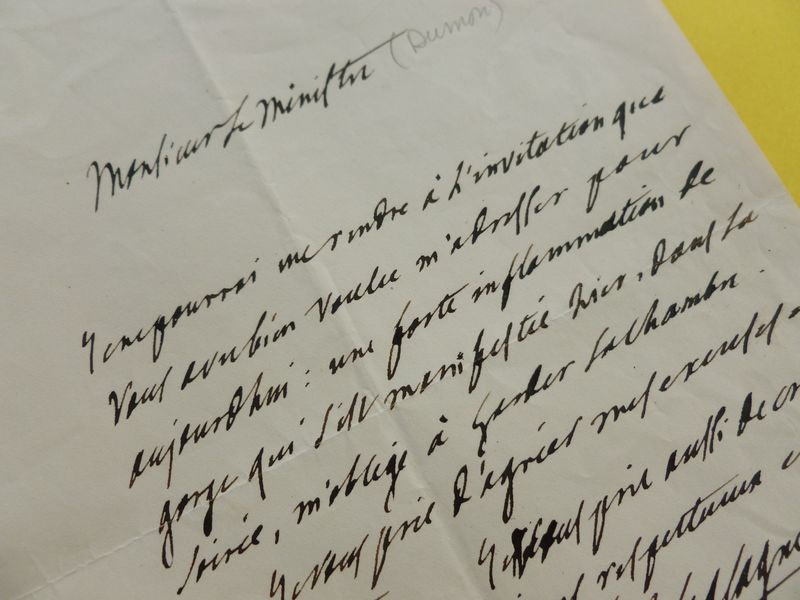 Monsieur Le Ministre (Dumon)
Je ne pourrai me rendre à L'invitation que
Vous avez bien voulu m'adresser pour
aujourd'hui: une forte inflammation de
gorge qui s'est manifestée hier, dans la
soirée, m'oblige à garder la chambre.
Je vous prie d'agréer mes excuses
Je vous prie aussi de
respectueux